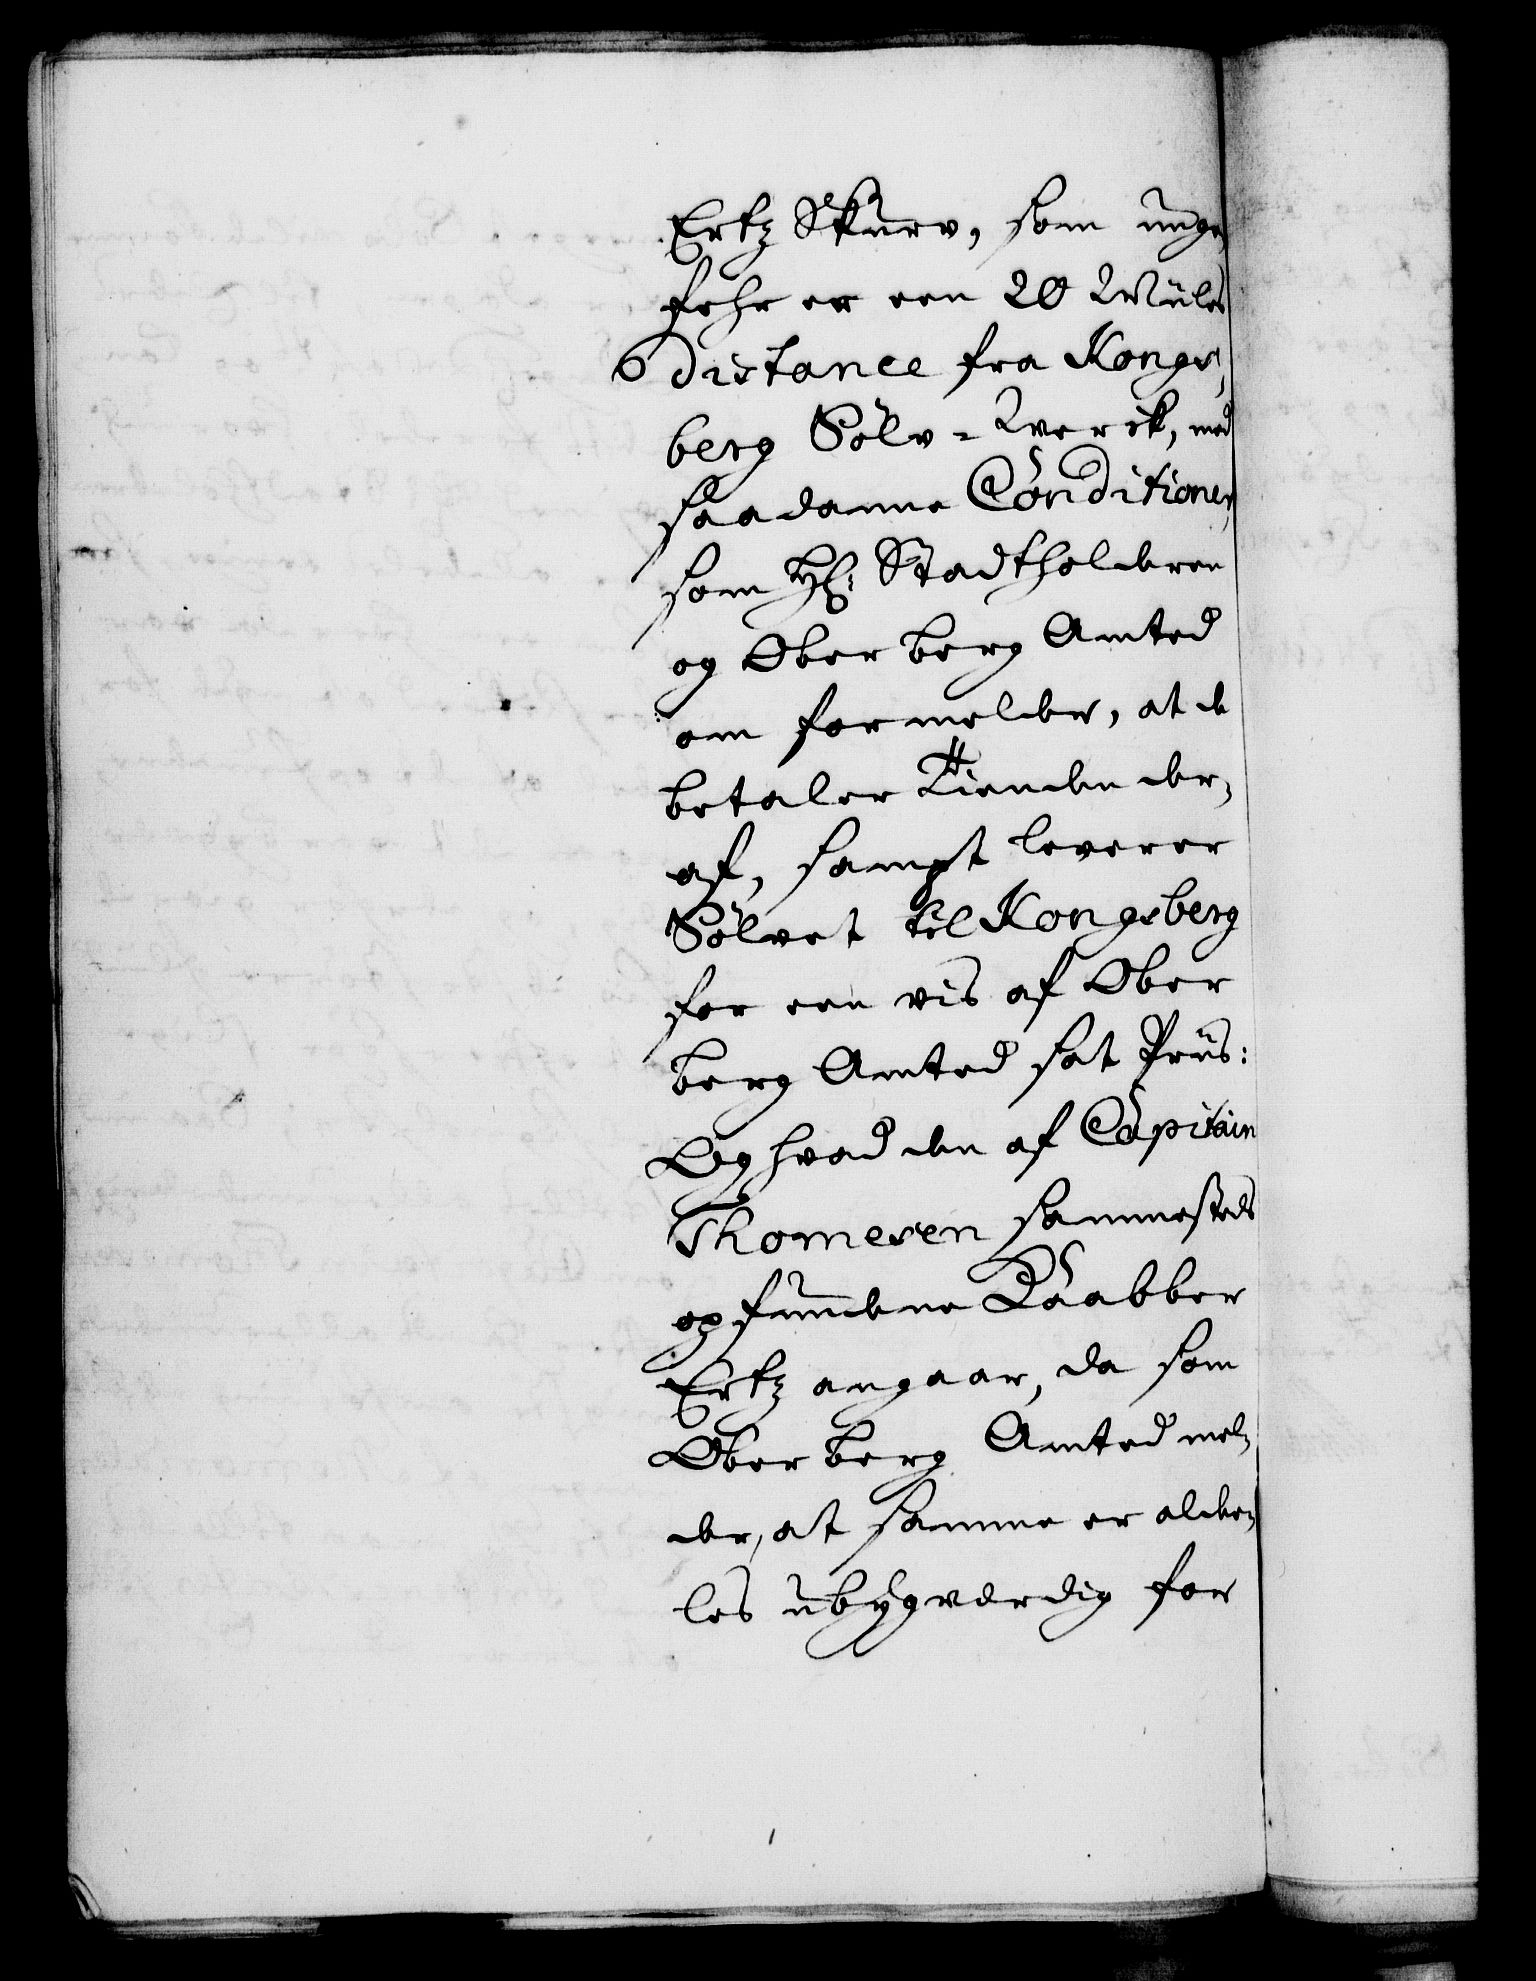 Ertz Skurv, som unge,
fehr er een 20 Miiles
distance fra Kongs,
berg Sölv-Verck, med
saadanne Conditioner,
som Hr: Stadtholderen
og Ober berg Amted
om formelder, at de
betaler Tienden der,
af, sampt leverer
Sölvet til Kongsberg
for een vis af Ober
berg Amted sat Priis:
Og hvad den af Capitain
Thomesen sammesteds
opfundene Kaabber
Ertz angaar, da som
Ober berg Amted mel,
der, at samme er alde,
les ubÿgverdig for